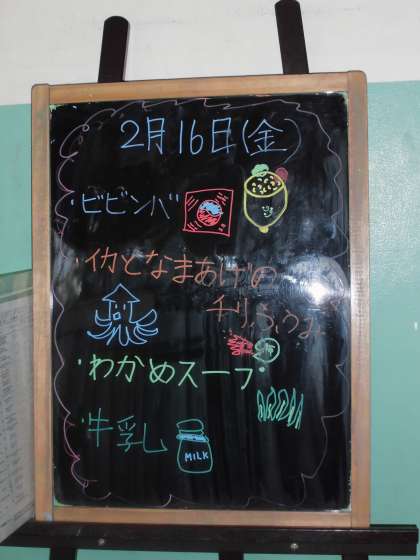 2月16日(金)
・ビビンバ
・イカとなまあげの
チリふうみ
・わかめスープ
・牛乳
MILK